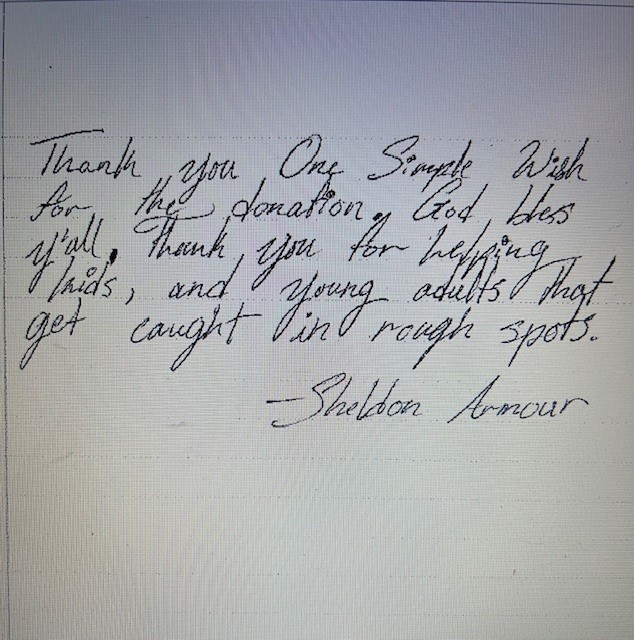 Thank you One Simple Wish
for the donation. God bless
y'all. Thank you for helping
kids, and young adults that
get caught in rough spots.
-Sheldon Armour